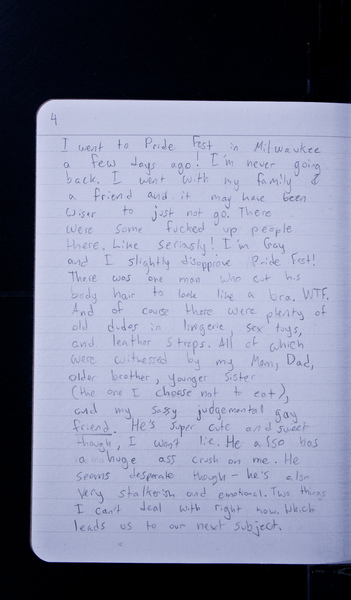 4
I went to Pride Fest in Milwaukee
a few days ago! I'm never going
back. I went with my family &
a friend and it may have been
wiser to just not go. There
were some fucked up people
there. Like seriasly! I'm Gay
and I slightly disapprove Pride Fest!
There was one man who cut his
body hair to look like a bra. WTF.
And of cause there were plenty of
old dudes in lingerie, sex toys,
and leather straps. All of which
were witnessed by my Mom, Dad,
older brother, younger sister
(the one I choose not to eat),
and my sassy judgemental gay
friend. He's super cute and sweet
though, I won't lie. He also has
a huge ass crush on me. He
seams desperate though - he's also
very stalkerish and emotional. Two things
I can't deal with right now. Which
leads us to our next subject.